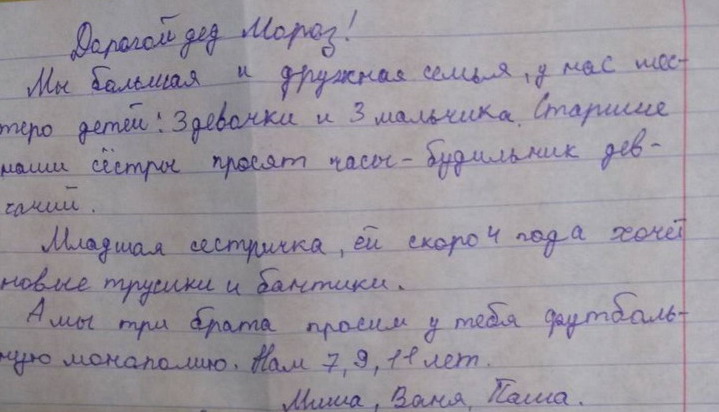 Дорогой дед Мороз!
Мы большая и дружная семья, у нас шес-
теро детей: 3 девочки и 3 мальчика. Старшие
наши сёстры просят часы-будильник дев-
чачий.
Младшая сестричка, ей скоро 4 года хочет
новые трусики и бантики.
А мы три брата просим у тебя футболь-
ную монаполию. Нам 7, 9, 11 лет.
Миша, Ваня, Паша.